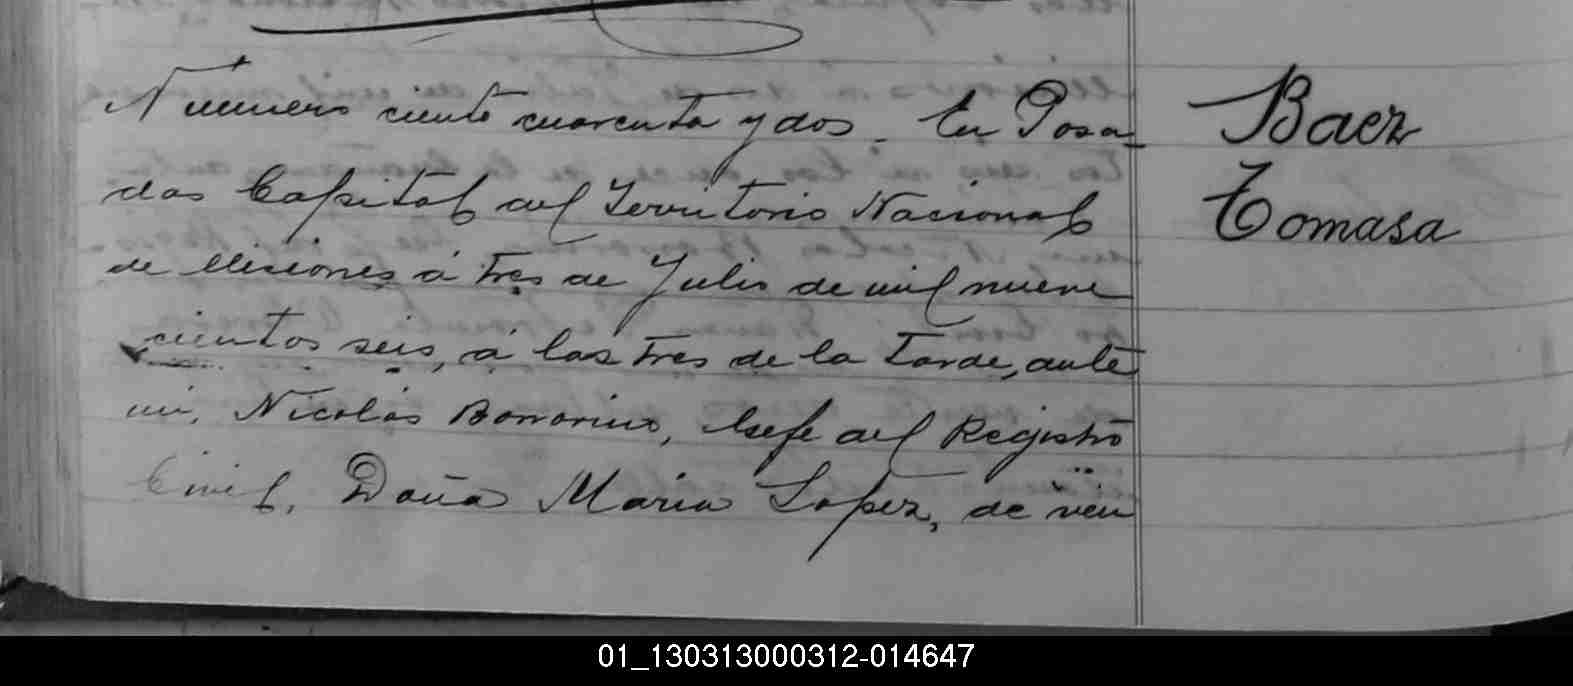 Número ciento cuarenta y dos. En Posa-
das Capital del Territorio Nacional
de Misiones á tres de Julio de mil nueve
cientos seis, á las tres de la tarde, ante
mi, Nicolás Bonorino, Gefe del Registro
Civil, Doña Maria Lopez, de vein
Baez
Tomasa
01_130313000312-014647